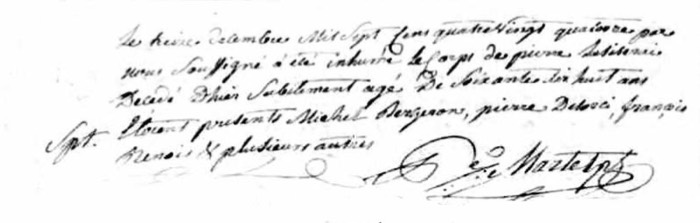 le treize decembre Mil Sept Cens quatre vingt quatorze par
nous Soussigné à été inhumé le Corps de pierre
Decedé D'hier Subitement agé De Soixante dix huit ans
Etoient presents Michel Bergeron, pierre françois
Spt. Benois & plusieurs autres
Martel ptre